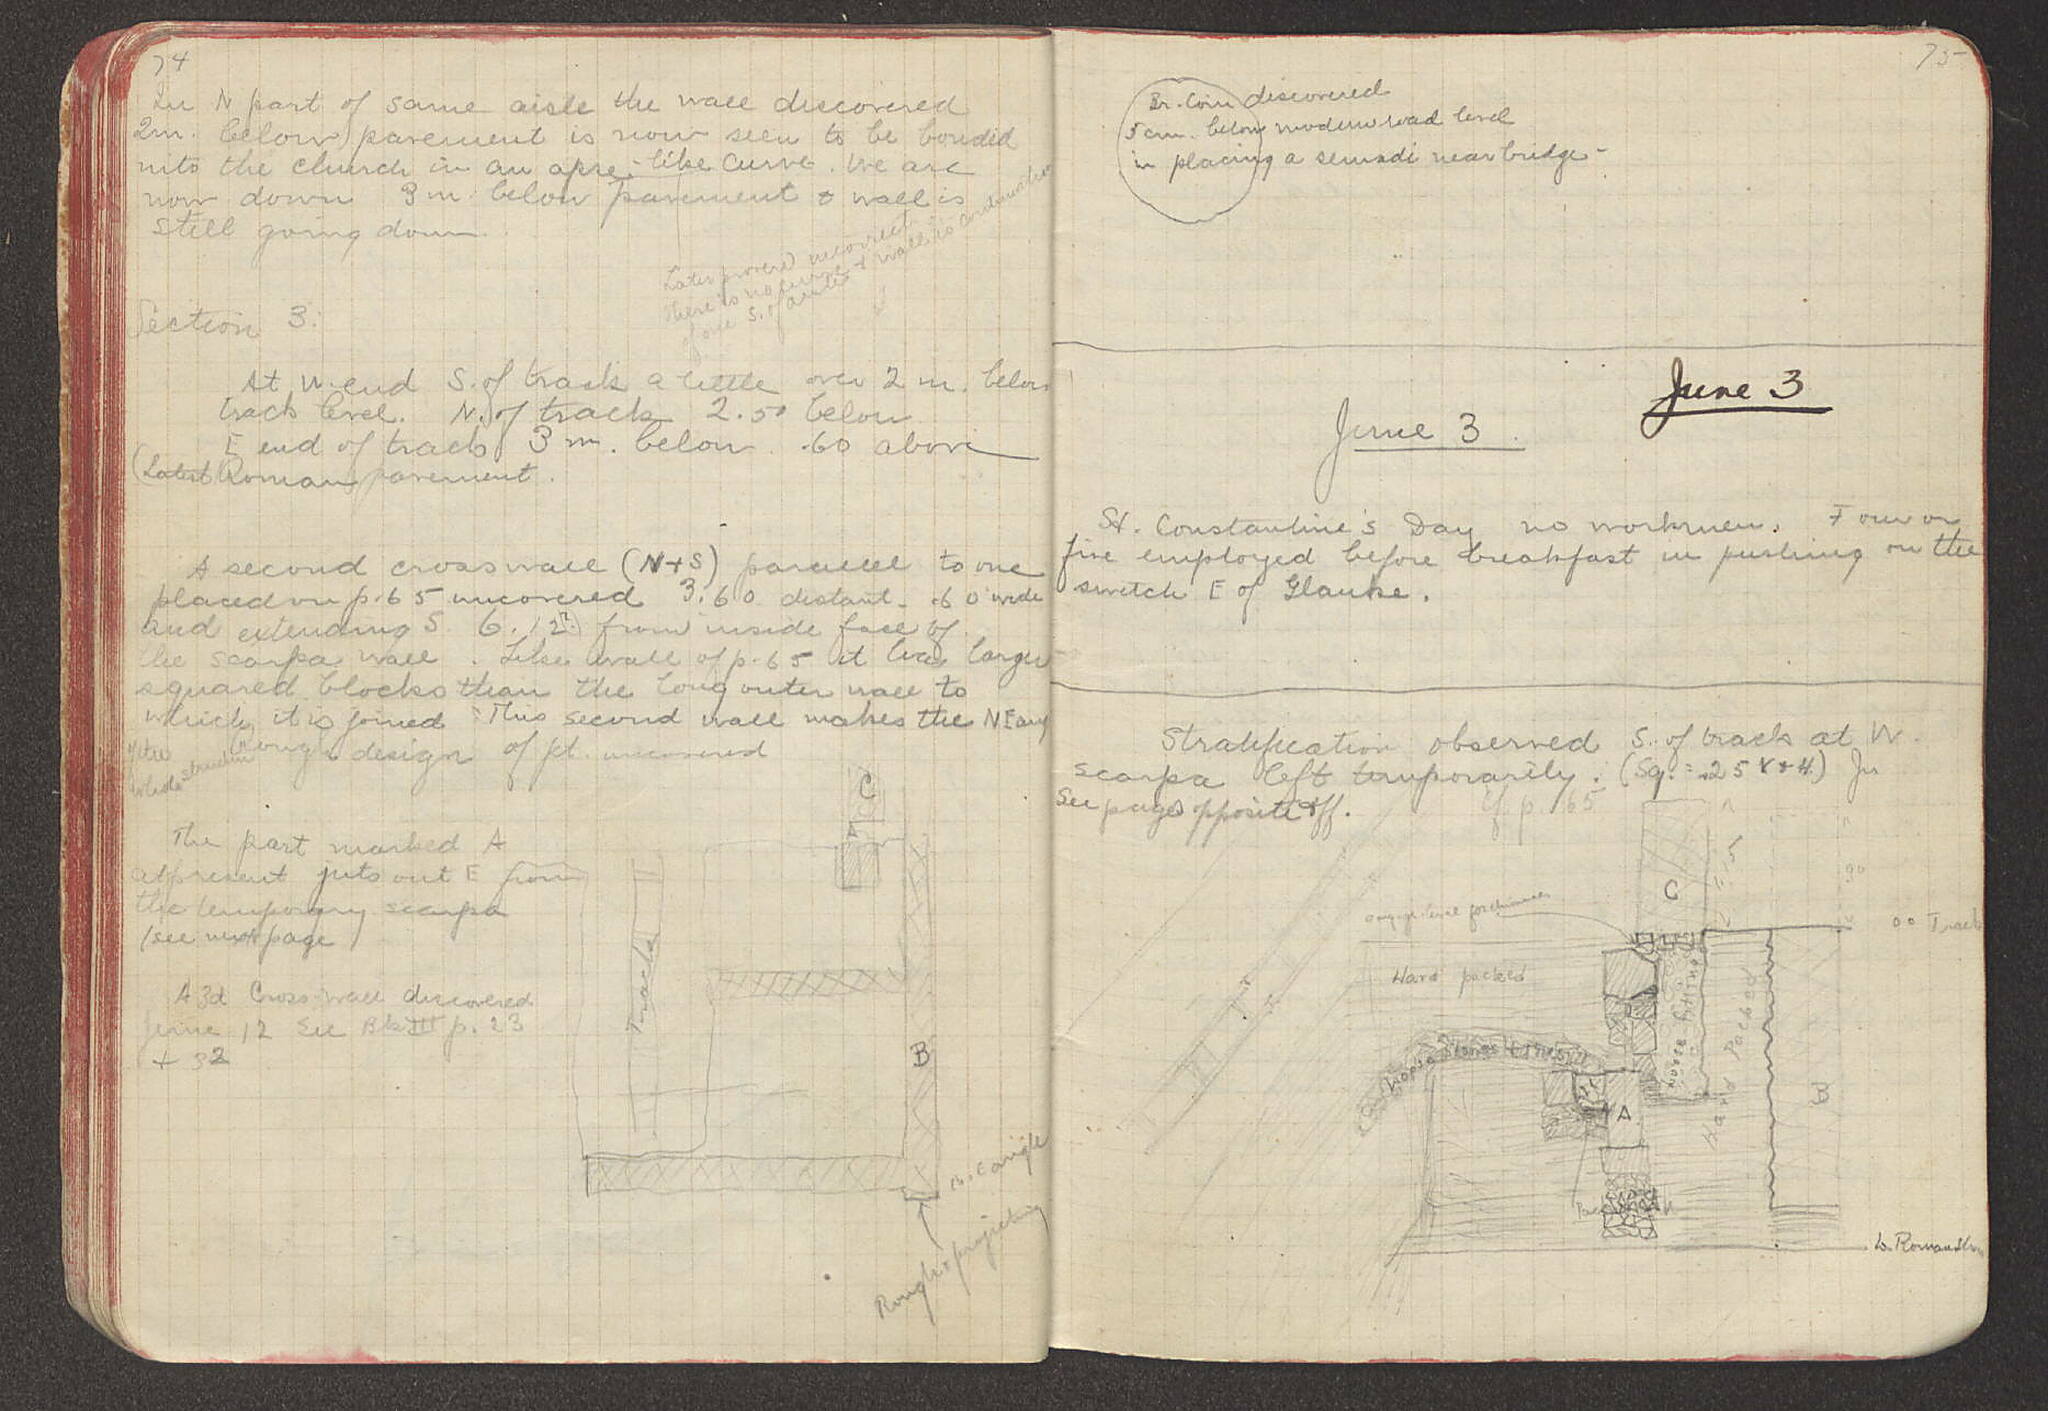 74
In N part of same aisle the wall discovered
2m. below pavement is now seen to be bonded
into the church in an apse-like curve. We are
now down 3 m below pavement & wall is
still going down.
Later proved incorrect
there is no curve & wall is continuation
of one S. of
Section 3.
At W. end S. of track a little over 2 m. below
track level. N. of track 2.50 below
E end of track 3 m. below .60 above
(Latest Roman pavement.
A second cross wall (N + S) parallel to one
placed on p. 65 uncovered 3.60 distant - .60 wide
and extending S. 6.12 from inside face of
the scarpa wall. Like wall of p. 65 it has larger
squared blocks than the long outer wall to
which it is joined. This second wall makes the NE ang
of the rough design of pt. uncovered
whole structure
The part marked A
at present juts out E from
the temporary scarpa
(see next page)
A 3d Cross-wall discovered
June 12 See Bk III p. 23
+ 32
C
A
Track
B
N.E angle
Rough & projecting
75
Br. Coin discovered
5 cm. below modern road level
in placing a semadi near bridge-
June 3
June 3.
St. Constantine's Day no workmen. Four or
five employed before breakfast in pushing on the
switch E of Glauke.
Stratification observed S. of track at W.
scarpa left temporarily. (Sq. = .25 )
See page opposite &ff.
cf. p. 65
C
90
00 Track
Hard packed
Loose filling
Hard Packed
stones
A
B
L. Roman